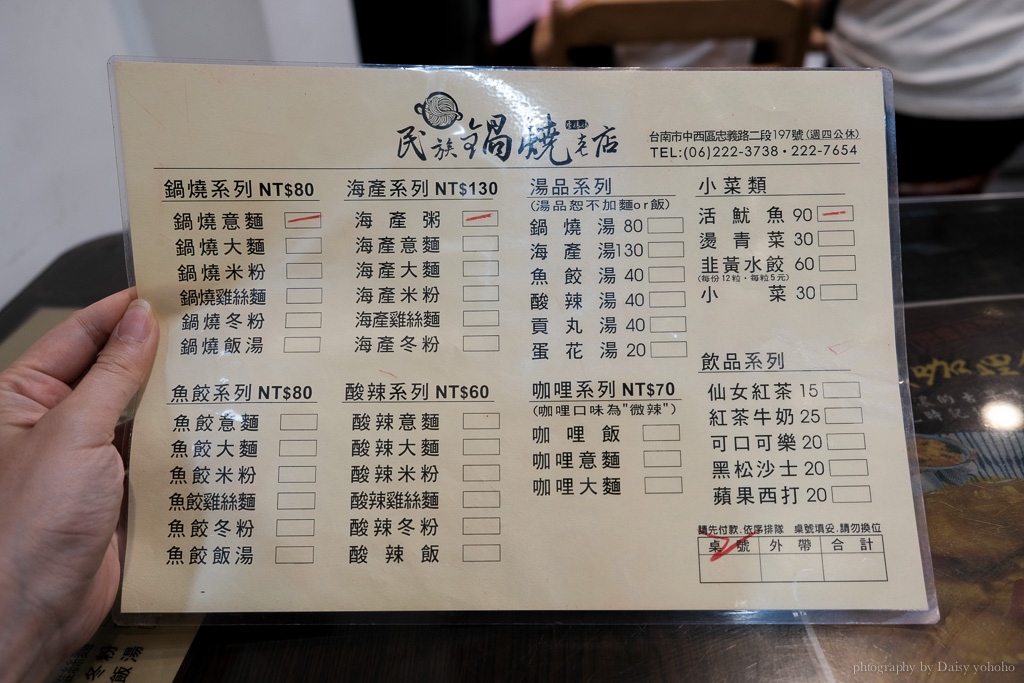 民族鍋燒老店
台南市中西區忠義路二段197號(週四公休)
TEL:(06)222-3738・222-7654
鍋燒系列 NT$80
鍋燒意麵
鍋燒大麵
鍋燒米粉
鍋燒雞絲麵
鍋燒冬粉
鍋燒飯湯
海產系列 NT$130
海產粥
海產意麵
海產大麵
海產米粉
海產雞絲麵
海產冬粉
湯品系列
(湯品恕不加麵or飯)
鍋燒湯 80
海產湯130
魚餃湯 40
酸辣湯 40
貢丸湯 40
蛋花湯 20
小菜類
活魷魚 90
燙青菜 30
韭黃水餃 60
(每份12粒・每粒5元)
小菜 30
魚餃系列 NT$80
魚餃意麵
魚餃大麵
魚餃米粉
魚餃雞絲麵
魚餃冬粉
魚餃飯湯
酸辣系列 NT$60
酸辣意麵
酸辣大麵
酸辣米粉
酸辣雞絲麵
酸辣冬粉
酸辣飯
咖哩系列 NT$70
(咖哩口味為"微辣")
咖哩飯
咖哩意麵
咖哩大麵
飲品系列
仙女紅茶 15
紅茶牛奶 25
可口可樂 20
黑松沙士 20
蘋果西打 20
請先付款.依序排隊 桌號填妥.請勿換位
桌號 外帶 合計
咖哩
冬粉
飯湯
photography by Daisy yohoho